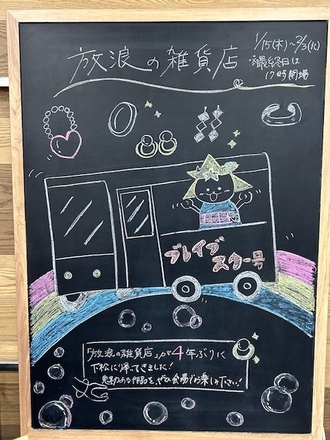 放浪の雑貨店
1/15(木)~2/3(火)
※最終日は
17時閉場
ブレイブ
スター号
「放浪の雑貨店」が4年ぶりに
下松に帰ってきました!
魅力ある作品を、ぜひ会場でお楽しみ下さい!